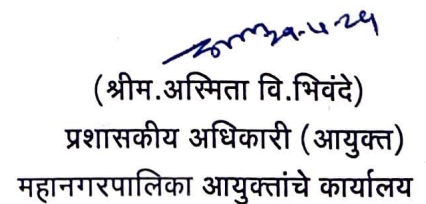 (श्रीम.अस्मिता वि.भिवंदे)
प्रशासकीय अधिकारी (आयुक्त)
महानगरपालिका आयुक्तांचे कार्यालय